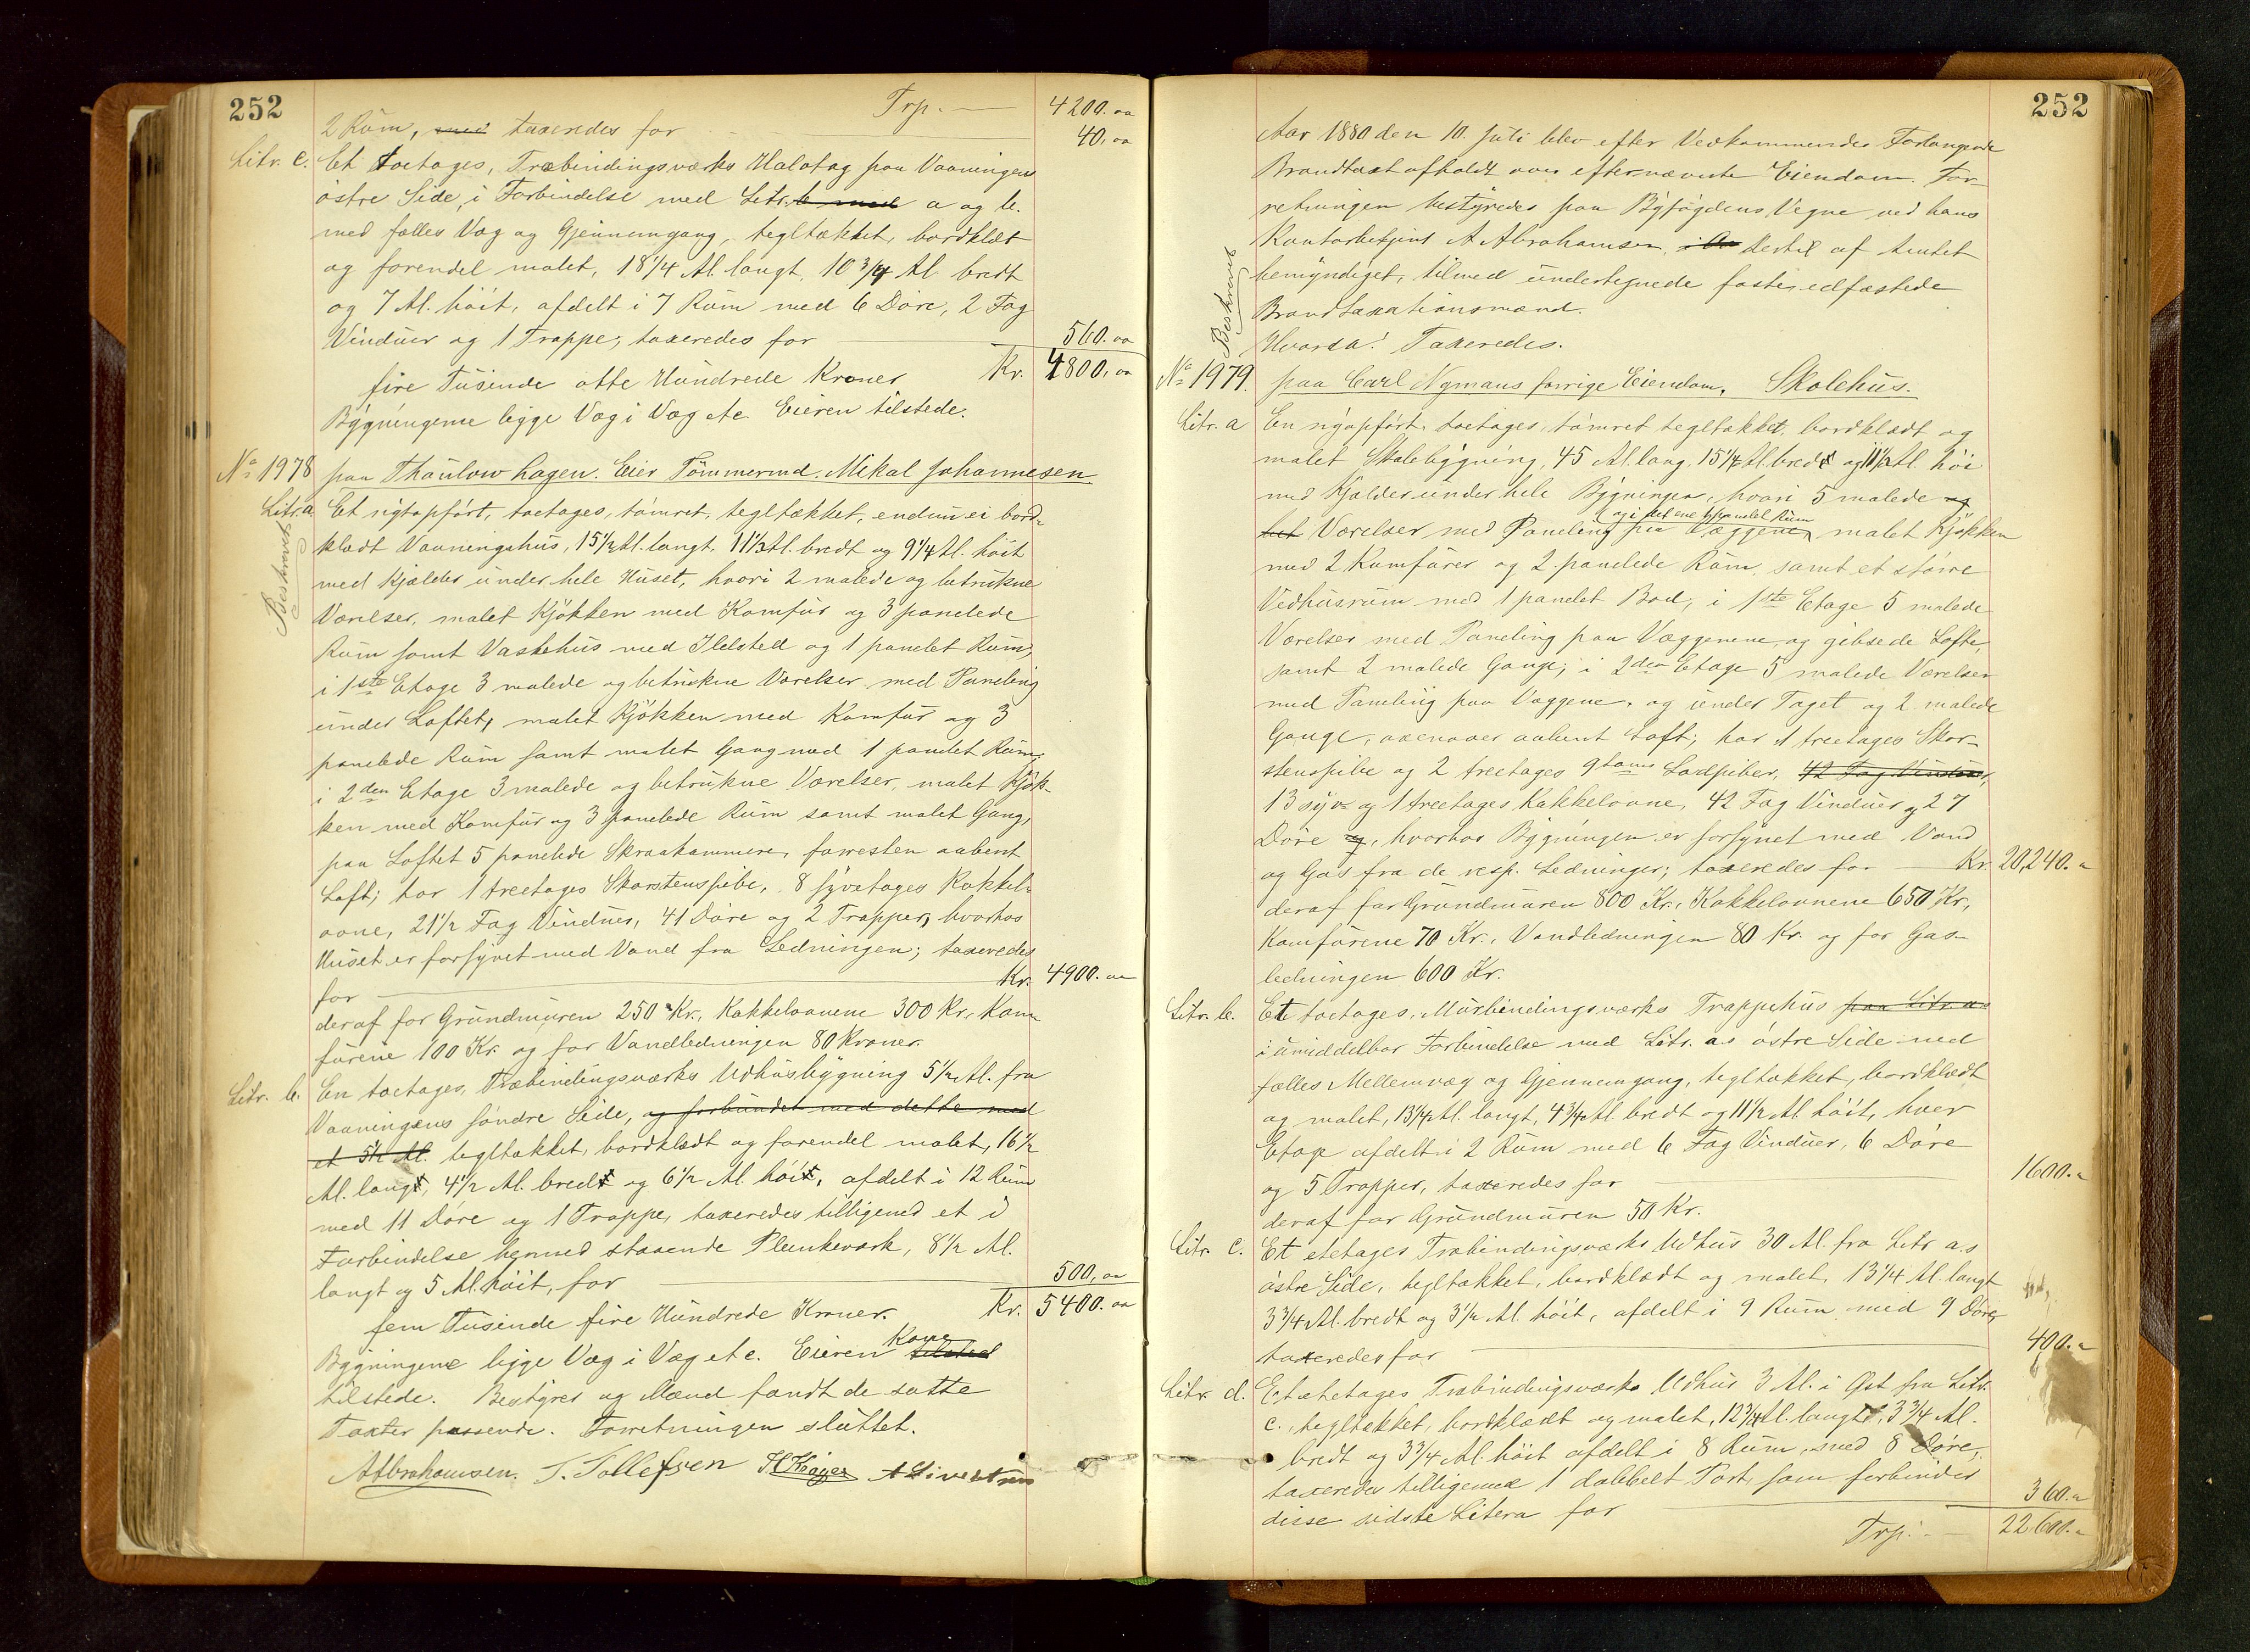 252
Trp. — 4200.oo
2 Rum, med taxeredes for 40,oo
Litr. c. Et toetages, Træbindingsværks Halvtag paa Vaaningens
östre Side, i Forbindelse med Litr. b med a og b.
med fælles Væg og Gjennemgang, tegltækket, bordklædt
og forendel malet, 18 1/4 Al. langt, 10 3/4 Al. bredt
og 7 Al. höit, afdelt i 7 Rum med 6 Döre, 2 Fag
Vinduer og 1 Trappe; taxeredes for 560.oo
fire Tusinde otte Hundrede Kroner Kr. 4800,oo
Bygningerne ligge Væg i Væg etc. Eieren tilstede.
No 1978 paa Thaulowhagen. Eier Tömmermd. Mekal Johannesen
Litr. a. Et nyopfört, toetages, tömret, tegltækket, endnu ei bord-
klædt Vaaningshus, 15 1/2 Al. langt, 11 1/2 Al. bredt og 9 1/4 Al. höit
Beskrevet
med Kjælder under hele Huset, hvori 2 malede og betrukne
Værelser, malet Kjökken med Komfur og 3 panelede
Rum samt Vaskehus med Ildsted og 1 panelet Rum;
i 1ste Etage 3 malede og betrukne Værelser med Paneling
under Loftet, malet Kjökken med Komfur og 3
panelede Rum samt malet Gang med 1 panelet Rum;
i 2den Etage 3 malede og betrukne Værelser, malet Kjök-
ken med Komfur og 3 panelede Rum samt malet Gang,
paa Loftet 5 panelede Skraakammere, forresten aabent
Loft; har 1 treetages Skorstenspibe, 8 syvetages Kakkel-
ovne, 21 1/2 Fag Vinduer, 41 Döre og 2 Trapper, hvorhos
Huset er forsynet med Vand fra Ledningen; taxeredes
for Kr. 4900.oo
deraf for Grundmuren 250 Kr., Kakkelovnene 300 Kr., Kom-
furene 100 Kr. og for Vandledningen 80 Kroner.
Litr. b. En toetages, Træbindingsværks Udhusbygning 5 1/2 Al. fra
Vaaningens söndre Side, og forbundet med dette med
et 5 1/2 Al. tegltækket, bordklædt og forendel malet, 16 1/2
Al. langt, 4 1/2 Al. bredt og 6 1/2 Al. höit, afdelt i 12 Rum
med 11 Döre og 1 Trappe, taxeredes tilligemed et i
Forbindelse hermed staaende Plankeværk, 8 1/2 Al.
langt og 5 Al. höit, for 500,oo
fem Tusinde fire Hundrede Kroner. Kr. 5400.oo
Bygningene ligge Væg i Væg etc. Eieren Kone tilsted
tilstede. Bestyrer og Mænd fandt de satte
Taxter passende. Forretningen sluttet.
AAbrahamsen. T. Tollefsen H Krøger A Sivertsen
252
Aar 1880 den 10. Juli blev efter Vedkommendes Forlangende
Brandtaxt afholdt over efternævnte Eiendom. For-
retningen bestyredes paa Byfogdens Vegne ved hans
Kontorbetjent A Abrahamsen, dertil af Amtet
bemyndiget, tilmed undertegnede faste, edfæstede
Brandtaxationsmænd.
Beskrevet
Hvorda! Taxeredes.
No 1979. paa Carl Nymans forrige Eiendom, Skolehus.
Litr. a En nyopfört, toetages, tömret, tegltækket, bordklædt og
malet Skolebygning, 45 Al. lang, 15 1/4 Al. bred og 11 1/2 Al. höi
med Kjælder under hele Bygningen, hvori 5 malede og
og i det ene 1 panelet Rum
bet Værelser med Paneling paa Væggene, malet Kjökken
med 2 Komfurer og 2 panelede Rum samt et större
Vedhusrum med 1 panelet Bod; i 1ste Etage 5 malede
Værelser med Paneling paa Væggenene og gibsede Lofte,
samt 2 malede Gange; i 2den Etage 5 malede Værelser
med Paneling paa Væggene, og under Taget og 2 malede
Gange, ovenover aabent Loft; har 1 treetages Skor-
stenspibe og 2 treetages 9toms Lodpiber, 42 Fag Vinduer,
13 syv- og 1 treetages Kakkelovne, 42 Fag Vinduer og 27
Döre og, hvorhos Bygningen er forsynet med Vand
og Gas fra de resp. Ledninger; taxeredes for Kr. 20,240.
deraf for Grundmuren 800 Kr., Kakkelovnene 650 Kr.,
Komfurene 70 Kr., Vandledningen 80 Kr. og for Gas-
ledningen 600 Kr.
Litr. b. Et toetages, Murbindingsværks Trappehus paa Litr. as
i umiddelbar Forbindelse med Litr. a.s östre Side med
fælles Mellemvæg og Gjennemgang, tegltækket, bordklædt
og malet, 13 1/4 Al. langt, 4 3/4 Al. bredt og 11 1/2 Al. höit, hver
Etage afdelt i 2 Rum med 6 Fag Vinduer, 6 Döre
og 5 Trapper, taxeredes for 1600.
deraf for Grundmuren 50 Kr.
Litr. c. Et etetages Træbindingsværks Udhus 30 Al. fra Litr a.s
östre Side, tegltækket, bordklædt og malet, 13 1/4 Al. langt
3 3/4 Al. bredt og 3 1/2 Al. höit, afdelt i 9 Rum med 9 Döre,
taxeredes for 400.
Litr. d. Et etetages Træbindingsværks Udhus 3 Al. i Öst fra Litr.
c., tegltækket, bordklædt og malet, 12 3/4 Al. langt, 3 3/4 Al.
bredt og 3 3/4 Al. höit afdelt i 8 Rum, med 8 Döre,
taxeredes tilligemed 1 dobbelt Port, som forbinder
disse sidste Litera for 360.
Trp. — 22,600.